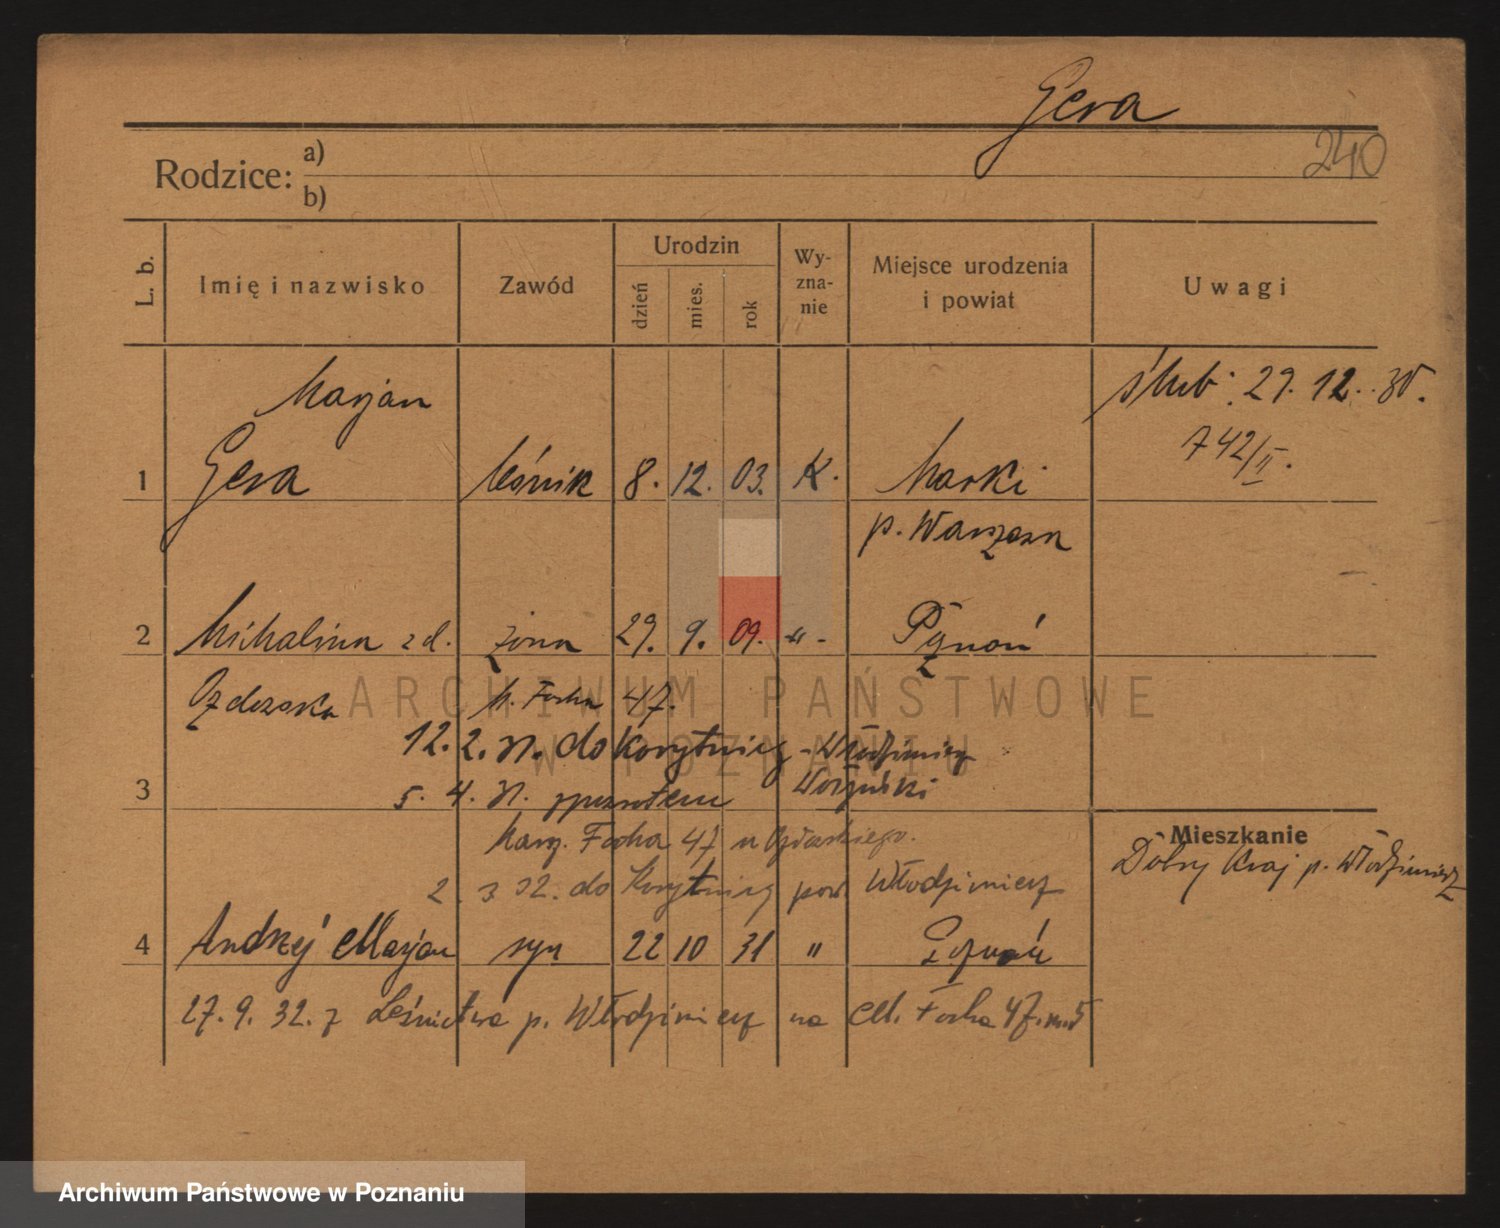 Gera
240
Rodzice: a)
b)
L. b. Imię i nazwisko Zawód Urodzin dzień mies. rok Wy-zna-nie Miejsce urodzenia i powiat Uwagi
Marjan ślub: 29. 12. 30.
742/II.
1 Gera leśnik 8. 12. 03. K. Marki
p. Warszawa
2 Michalina zd. żona 29. 9. 09. " - Poznań
M. Focha 47.
12. 2. 31. do Korytnicy - Włodzimierz
3 5. 4. 31. spowrotem Wołyński
Mieszkanie
Marsz. Focha 47 u
Dobry Kraj p. Włodzimierz
2. 3 32. do Korytnicy pow. Włodzimierz
4 Andrzej Marjan syn 22 10 31 " Poznań
27. 9. 32. z Leśnictwa p. Włodzimierz na M. Focha 47. m. 5
ARCHIWUM PAŃSTWOWE
W POZNANIU
Archiwum Państwowe w Poznaniu